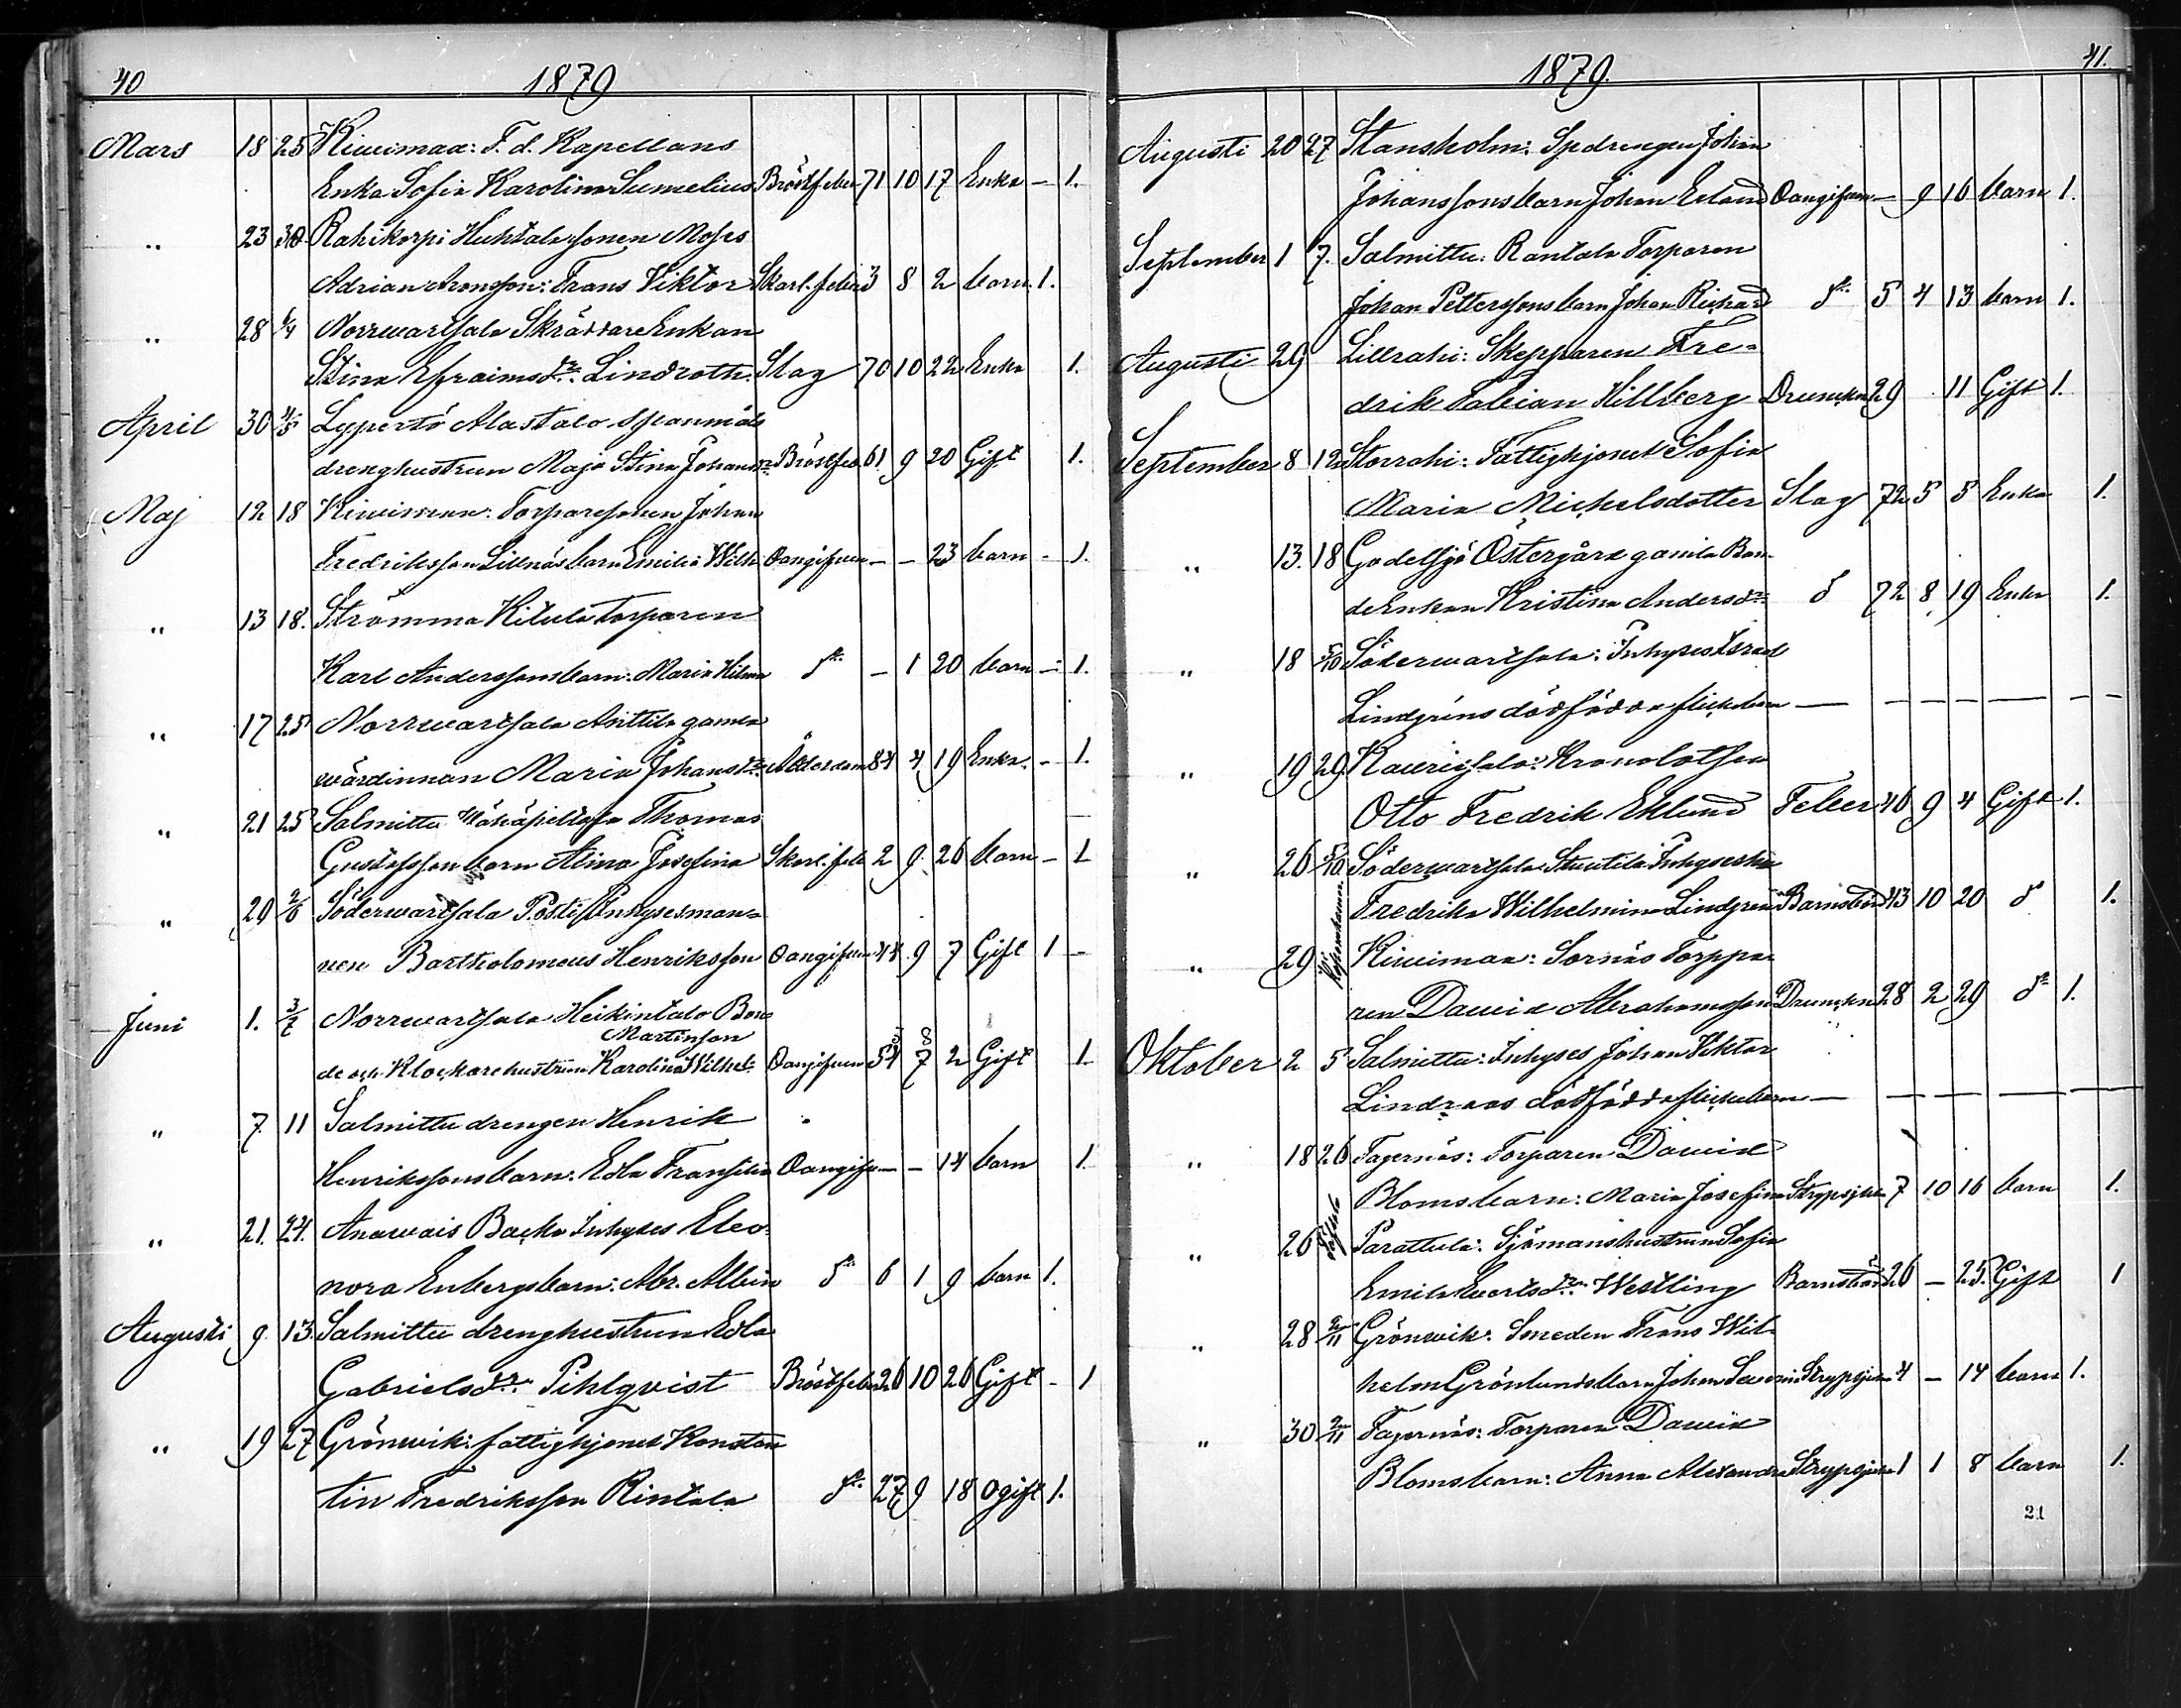 40
1879
Mars 18 25 Kiwimaa: F. d. Kapellans
Enka Sofia Karolina Sumelius Bröstfeber 71 10 17 Enka — 1.
„ 23 30 Rahikorpi Huhtala sonen Moses
Adrian Aronsson: Frans Viktor Skarl. feber 3 8 2 barn 1.
„ 28 6/4 Norrwartsala Skräddare Enkan
Stina Efraimsdr. Lindroth. Slag 70 10 22 Enka 1.
April 30 4/5 Lypertö Alastalo
drenghustrun Maja Stina Johansdr Bröstfeb 61 9 20 Gift 1.
Maj 12 18 Kiwimaa: Torparesonen Johan
Fredriksson Lillnäs barn Emilia Wilh. Oangifven — — 23 barn — 1.
„ 13 18. Strömma Kitula torparen
Karl Anderssons barn. Maria Hilma do — 1 20 barn — 1.
„ 17 25 Norrwartsala Anttila gamla
wärdinnan Maria Johansdr. Ålderdom 84 4 19 Enka. — 1.
„ 21 25 Salmittu Thomas
Gustafsson barn Alina Josefina Skarl. feb 2 9 26 barn — 1
„ 29 2/6 Söderwartsala Posti Inhysesman-
nen Bartholomeus Henriksson Oangifven 44 9 7 Gift 1 —
Juni 1. 3/7 Norrwartsala Heikintalo Bon-
Martinson
de och Klockarehustrun Karolina Wilhel. Oangifven 54 7 2 Gift 1.
„ 7 11 Salmittu drengen Henrik
Henrikssons barn: Edla Fransiska Oangifv — — 14 barn 1.
„ 21. 24. Anawais Backa Inhyses Eleo-
nora Enbergs barn: Abr. Albin do 6 1 9 barn 1.
Augusti 9 13. Salmittu drenghustrun Edla
Gabrielsdr. Pihlqvist Bröstfeber 26 10 26 Gift — 1
„ 19 27 Grönwik: fattighjonet Konstan
tin Fredriksson Rintala do 27 9 18 ogift 1.
41.
1879.
Augusti 20 27 Stansholm: Spdrengen Johan
Johanssons barn Johan Erland Oangifven — 9 16 barn 1.
September 1 7. Salmittu: Rantala Torparen
Johan Petterssons barn Johan Richard do 5 4 13 barn 1.
Augusti 29 Lillrahi: Skepparen Fre-
drik Fabian Killberg Drunkn 29 11 Gift 1.
September 8 12 Storrahi: Fattighjonet Sofia
Maria Michelsdotter Slag 72 5 5 Enka 1.
„ 13. 18 Godelsjö Östergård gamla Bon-
de Enkan Kristina Andersdr. do 72 8 19 Enka 1.
„ 18 5/10 Söderwartsala: Inhyses Israel
Lindgréns dödfödda flickebarn — — — — — — —
„ 19 29. Kaurissalo: Kronolotsen
Otto Fredrik Eklund Feber 46 9 4 Gift 1.
„ 26 5/10 Söderwartsala Inhyseshu
Fredrika Wilhelmina Lindgren Barnsbörd 43 10 20 do 1.
„ 29 Kiwimaa: Sornäs Torppa-
ren Dawid Abrahamsson Drunkn 28 2 29 do 1.
Oktober 2 5 Salmittu: Inhyses Johan Viktor
Lindroos dödfödda flickebarn — — — — — —
„ 18 26 Fagernäs: Torparen Dawid
Bloms barn: Maria Josefina Strypsjuka 7 10 16 barn 1.
„ 26 Parattula: Sjömanshustrun Sofia
Emila Evertsdr. Westling Barnsbörd 26 — 25. Gift 1
„ 28 2/11 Grönwik: Smeden Frans Wil-
helm Grönlunds barn Johan Strypsjuka 4 — 14 barn 1.
„ 30 2/11 Fagernäs: Torparen Dawid
Bloms barn: Anna Alexandra Strypsjuka 1 1 8 barn 1.
21